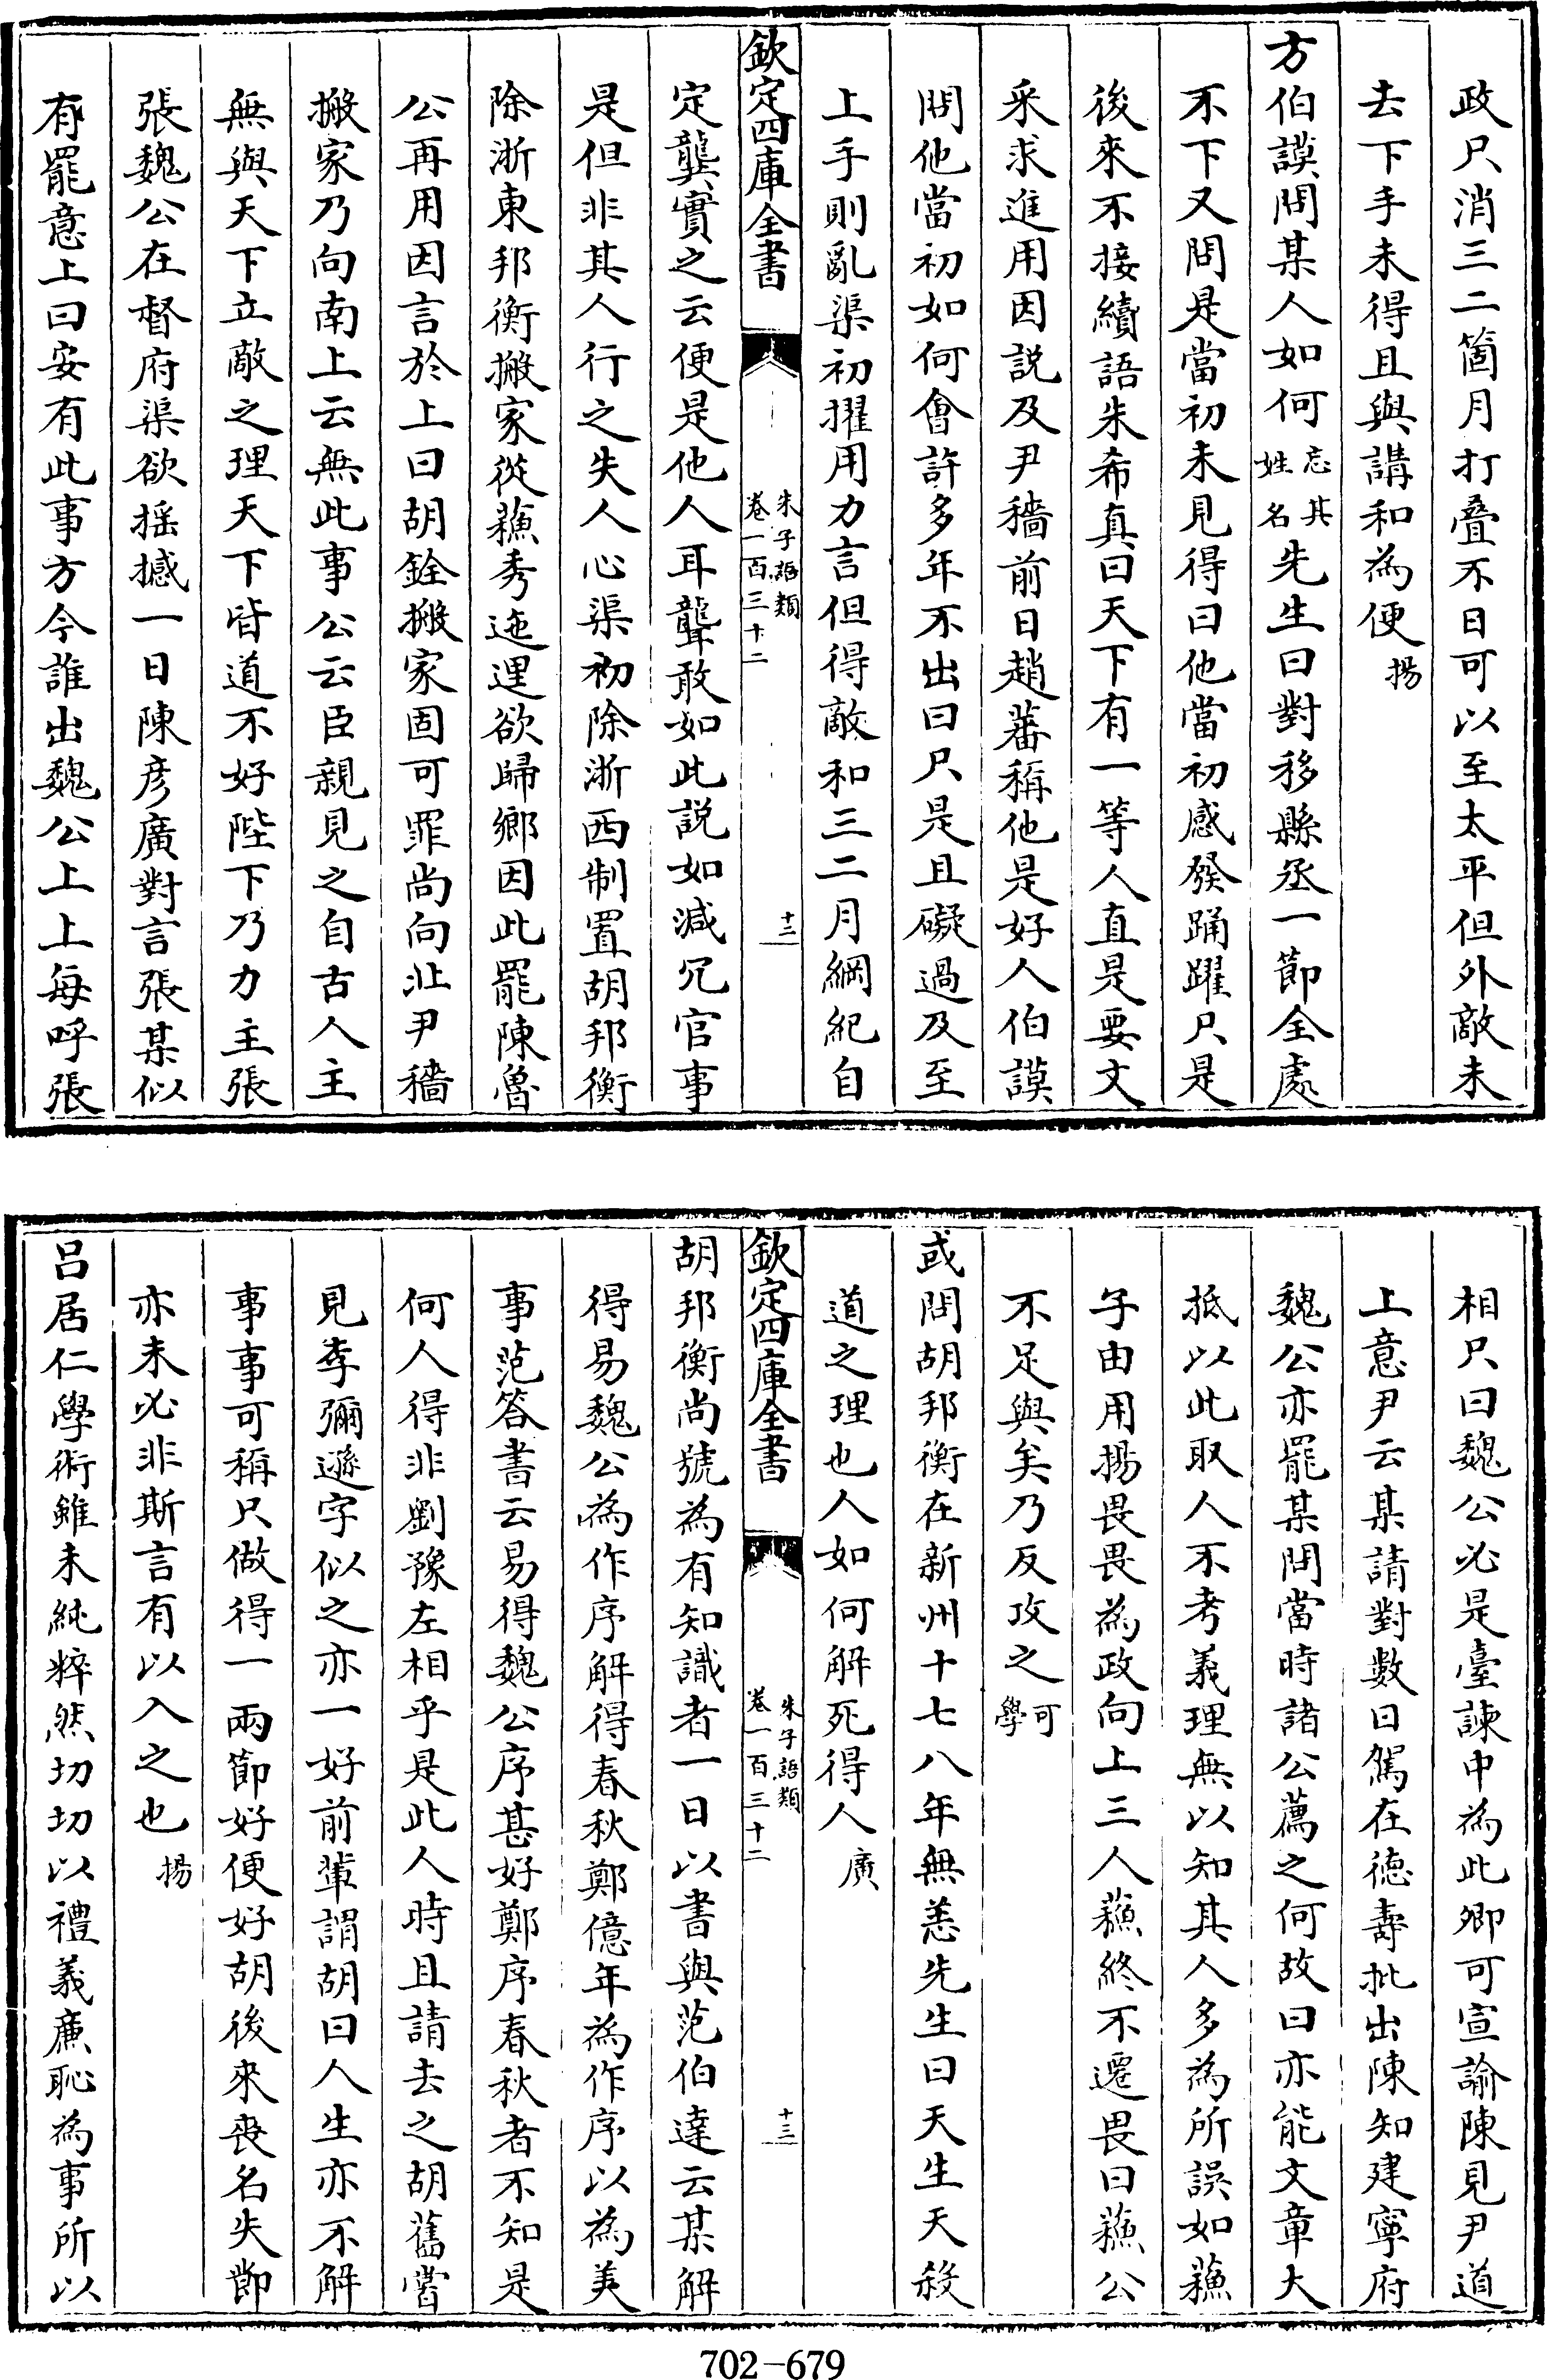 政只消三二箇月打疊不日可以至太平但外敵未
去下手未得且與講和為便揚
方伯謨問某人如何忘其姓名先生曰對移縣丞一節全處
不下又問是當初未見得曰他當初感發踊躍只是
後來不接續語朱希真曰天下有一等人直是要文
采求進用因説及尹穡前日趙蕃稱他是好人伯謨
問他當初如何會許多年不出曰只是且礙過及至
上手則亂渠初擢用力言但得敵和三二月綱紀自
欽定四庫全書 朱子語類卷一百三十二 十三
定龔實之云便是他人耳聾敢如此説如減冗官事
是但非其人行之失人心渠初除浙西制置胡邦衡
除浙東邦衡搬家從蘇秀迤邐欲歸鄉因此罷陳魯
公再用因言於上曰胡銓搬家固可罪尚向北尹穡
搬家乃向南上云無此事公云臣親見之自古人主
無與天下立敵之理天下皆道不好陛下乃力主張
張魏公在督府渠欲揺撼一日陳彦廣對言張某似
有罷意上曰安有此事方今誰出魏公上上每呼張
相只曰魏公必是臺諫中為此卿可宣諭陳見尹道
上意尹云某請對數日駕在徳壽批出陳知建寧府
魏公亦罷某問當時諸公薦之何故曰亦能文章大
抵以此取人不考義理無以知其人多為所誤如蘇
子由用揚畏畏為政向上三人蘇終不遷畏曰蘇公
不足與矣乃反攻之可學
或問胡邦衡在新州十七八年無恙先生曰天生天殺
道之理也人如何解死得人廣
欽定四庫全書 朱子語類卷一百三十二 十三
胡邦衡尚號為有知識者一日以書與范伯達云某解
得易魏公為作序解得春秋鄭億年為作序以為美
事范答書云易得魏公序甚好鄭序春秋者不知是
何人得非劉豫左相乎是此人時且請去之胡舊嘗
見李彌遜字似之亦一好前輩謂胡曰人生亦不解
事事可稱只做得一兩節好便好胡後來喪名失節
亦未必非斯言有以入之也揚
呂居仁學術雖未純粹然切切以禮義廉恥為事所以
702-679